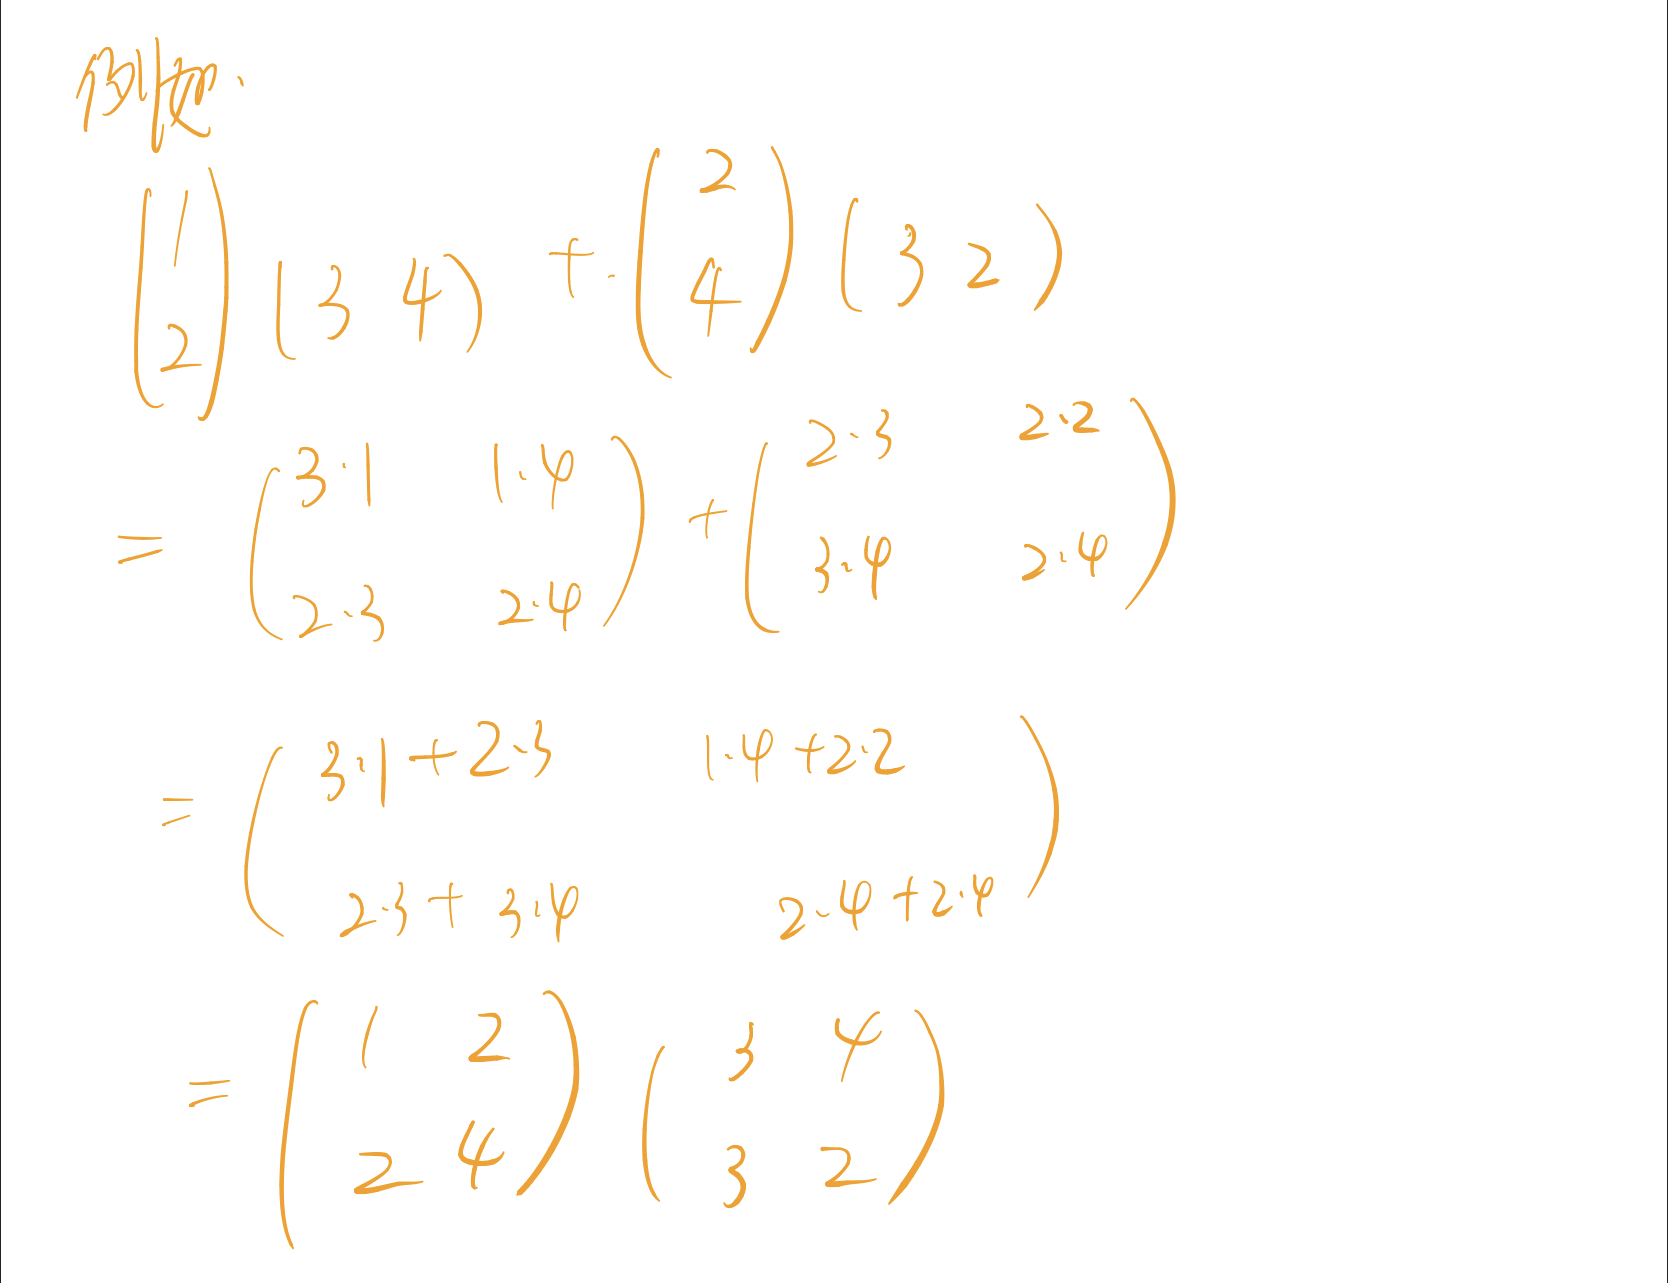 例如.
(1 2) (3 4) + (2 4) (3 2)
= (3·1 1·4 2·3 2·4) + (2·3 2·2 3·4 2·4)
= (3·1+2·3 1·4+2·2 2·3+3·4 2·4+2·4)
= (1 2 2 4) (3 4 3 2)